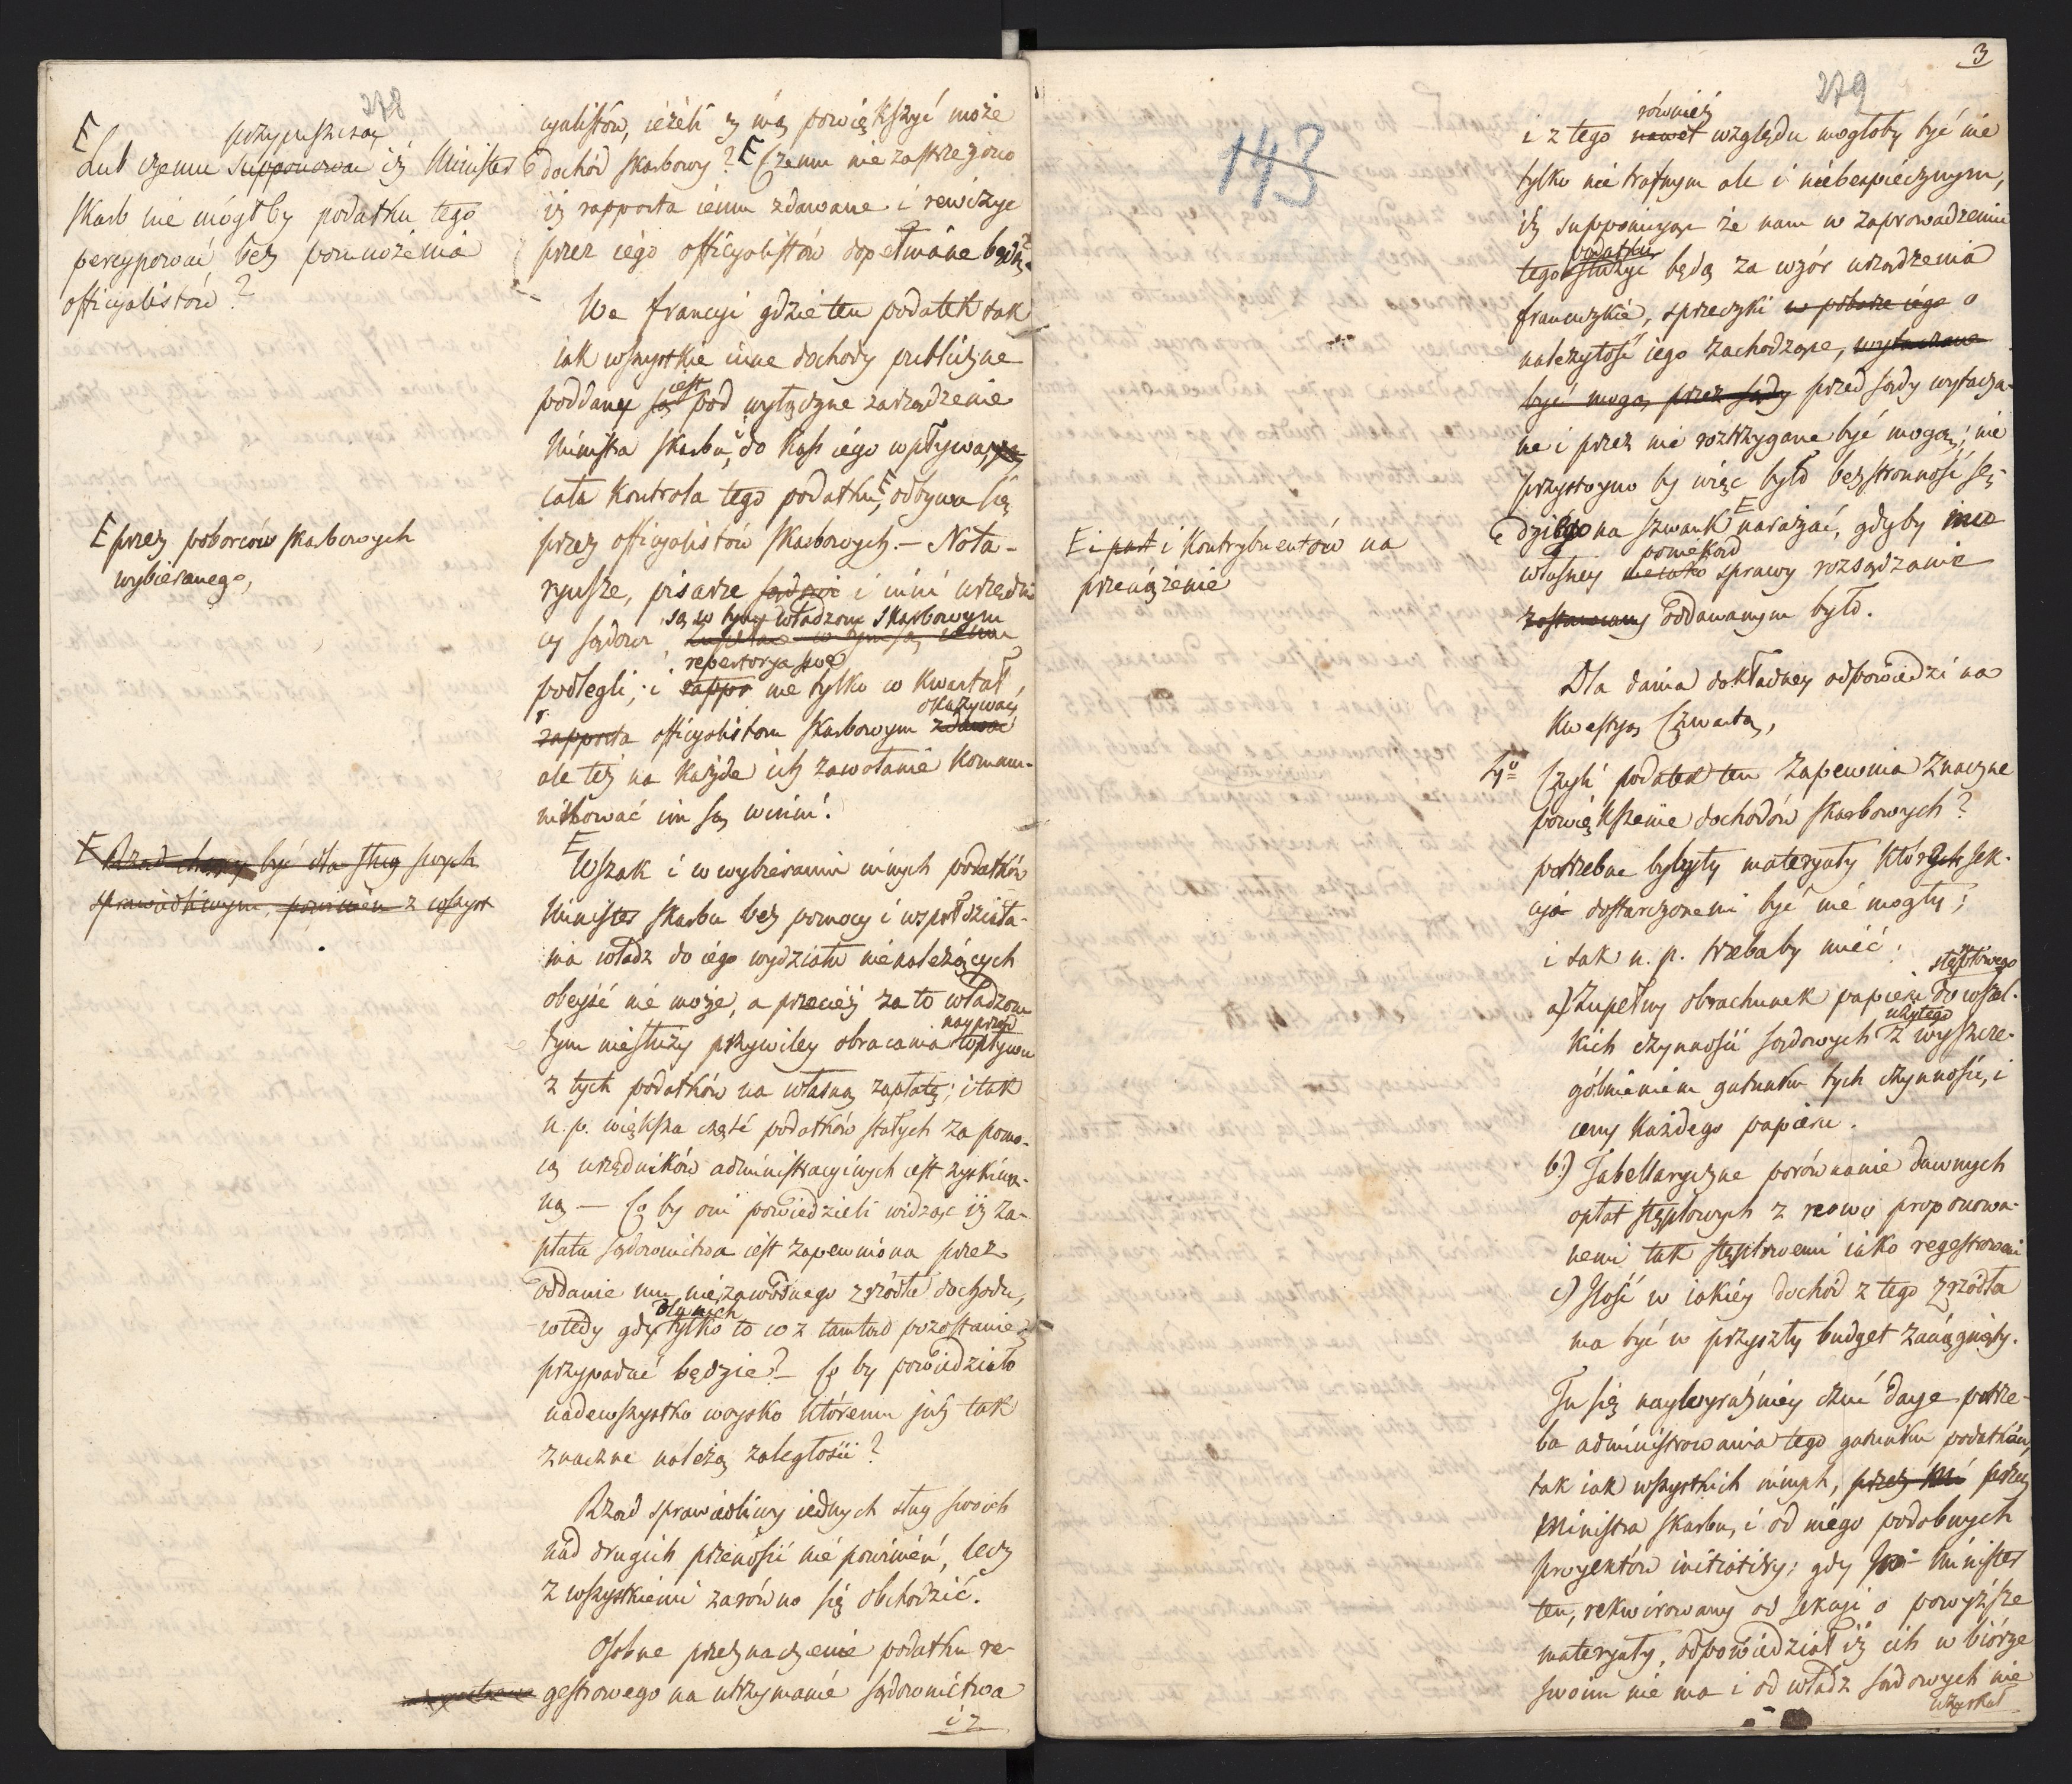 278
przypuszczać
Lub czemu supponować iż Minister
Skarb. nie mógłby podatku tego
percypować bez pomnożenia
officyalistów?
E przez poborców skarbowych
wybieranego,
E Rząd chcący być dla sług swych
sprawiedliwym, powinien z wszyst
cyalistów, ieżeli y mią powiększyć może
dochód skarbowy? E Czemu nie zastrzeżono
iż rapporta iemu zdawane i rewizye
przez iego officyalistów dopełniane będą?
We francyi gdzie ten podatek tak
iak wszystkie inne dochody publiczne
poddany są iest pod wyłączne zarządzenie
Ministra Skarbu, do kass iego wpływa,
cała kontrola tego podatku, E odbywa się
przez officyalistów skarbowych. — Nota-
ryusze, pisarze sądowi i inni urzędni
są w tym władzom skarbowym
cy sądowi
repertorya swe
podlegli; i rappor nie tylko w kwartał
okazywać
rapporta officyalistom skarbowym zdawać
ale też na każde ich zawołanie kommu-
nikować im są winni.
E
Wszak i w wybieraniu innych podatków
Minister Skarbu bez pomocy i współdziała-
nia władz do iego wydziału nienależących
obeyść nie może, a przecież za to władzom
nayprzód
tym niesłuży przywiley obracania wpływu
z tych podatków na własną zapłatę; i tak
n. p. większa część podatków stałych za pomo-
cą urzędników administracyinych iest zyskiwa-
ną — Co by oni powiedzieli widząc iż za-
płata sądownictwa iest zapewniona przez
oddanie mu niezawodnego zrzódła dochodu,
dla nich
wtedy gdy tylko to co z tamtąd pozostanie
przypadać będzie? — Co by powiedziało
nadewszystko woysko któremu już tak
znaczne należą zaległości?
Rząd sprawiedliwy iednych sług swoich
nad drugich przenosić nie powinien, lecz
z wszystkiemi zarówno się obchodzić.
Osobne przeznaczenie podatku re-
gestrowego na utrzymanie sądownictwa
i z
3
279
143
E i i kontrybuentów na
przeciążenie
również
i z tego nawet względu mogłoby być nie
tylko nietrafnym ale i niebezpiecznym,
iż supponuiąc że nam w zaprowadzeniu
podatku
tego służyć będą za wzór urządzenia
francuzkie, sprzeczki w poborze iego o
należytość iego zachodzące, wytaczane
być mogą przez sądy przed sądy wytacza-
ne i przez nie roztrzygane być mogą; nie
przystoyno by więc było bezstronność sę-
dziego na szwank E narażać, gdyby mu
poniekąd
własney sprawy rozsądzanie
zostawiony oddawanym było.
Dla dania dokładney odpowiedzi na
kwestyą Czwartą,
4to Czyli podatek ten zapewnia znaczne
powiększenie dochodów skarbowych?
potrzebne byłyby materyały których sek-
cya dostarczonemi być nie mogły;
i tak n. p. trzebaby mieć:
stęplowego
a) Zupełny obrachunek papieru do wszel-
użytego
kich czynności sądowych z wyszcze-
gólnieniem gatunku tych czynności, i
ceny każdego papieru.
b.) Tabellaryczne porównanie dawnych
opłat stęplowych z nowo proponowa-
nemi tak stęplowemi iako regestrowemi
c) Ilość w iakiéy dochód z tego zrzódła
ma być w przyszły budget zaciągnięty.
Tu się naywyraźniéy czuć daye potrze-
ba administrowania tego gatunku podatków,
tak iak wszystkich innych, przez Mi przez
Ministra Skarbu, i od niego podobnych
proyektów initiatiwy; gdy Minister
ten, rekwirowany od sekcyi o powyższe
materyały, odpowiedział iż ich w biórze
swoim nie ma i od władz sądowych nie
uzyskał